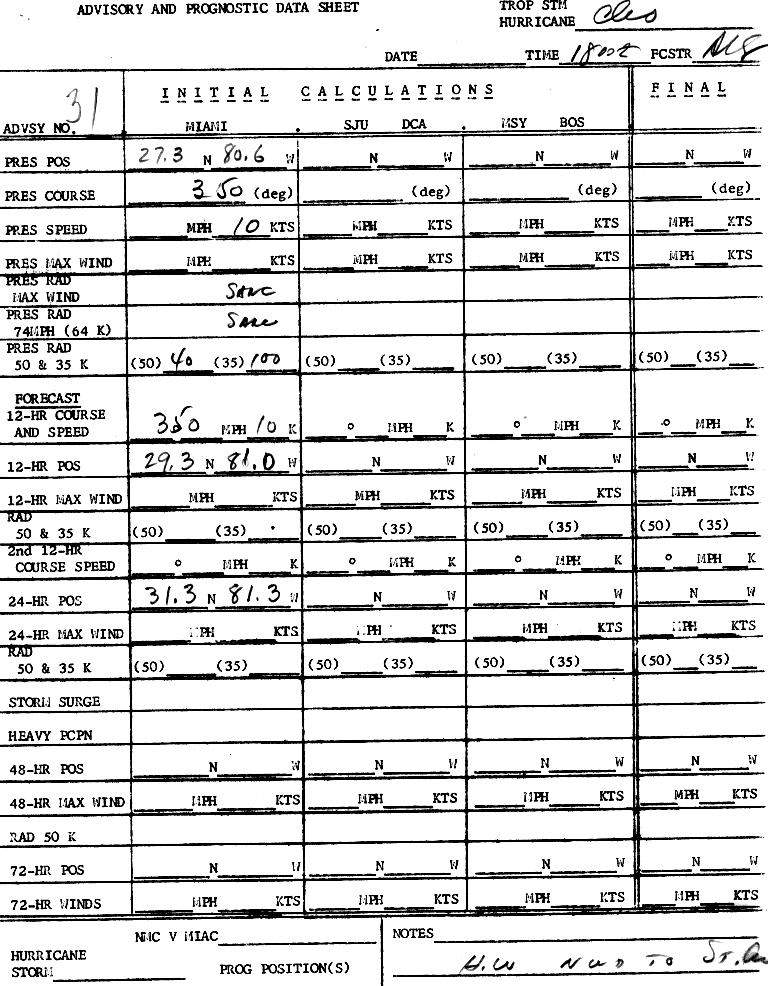 ADVISORY AND PROGNOSTIC DATA SHEET
TROP STM
HURRICANE Cleo
DATE TIME 1800z FCSTR
31 INITIAL CALCULATIONS FINAL
ADVSY NO. MIAMI . SJU DCA . MSY BOS
PRES POS 27.3 N 80.6 W N W N W N W
PRES COURSE 350 (deg) (deg) (deg) (deg)
PRES SPEED MPH 10 KTS MPH KTS MPH KTS MPH KTS
PRES MAX WIND MPH KTS MPH KTS MPH KTS MPH KTS
PRES RAD
MAX WIND Same
PRES RAD
74MPH (64 K) Same
PRES RAD
50 & 35 K (50) 40 (35) 100 (50) (35) (50) (35) (50) (35)
FORECAST
12-HR COURSE
AND SPEED 350 MPH 10 K ° MPH K ° MPH K ° MPH K
12-HR POS 29.3 N 81.0 W N W N W N W
12-HR MAX WIND MPH KTS MPH KTS MPH KTS MPH KTS
RAD
50 & 35 K (50) (35) (50) (35) (50) (35) (50) (35)
2nd 12-HR
COURSE SPEED ° MPH K ° MPH K ° MPH K ° MPH K
24-HR POS 31.3 N 81.3 W N W N W N W
24-HR MAX WIND MPH KTS MPH KTS MPH KTS MPH KTS
RAD
50 & 35 K (50) (35) (50) (35) (50) (35) (50) (35)
STORM SURGE
HEAVY PCPN
48-HR POS N W N W N W N W
48-HR MAX WIND MPH KTS MPH KTS MPH KTS MPH KTS
RAD 50 K
72-HR POS N W N W N W N W
72-HR WINDS MPH KTS MPH KTS MPH KTS MPH KTS
NMC V MIAC NOTES
HURRICANE
STORM PROG POSITION(S) H.W NWD TO ST.